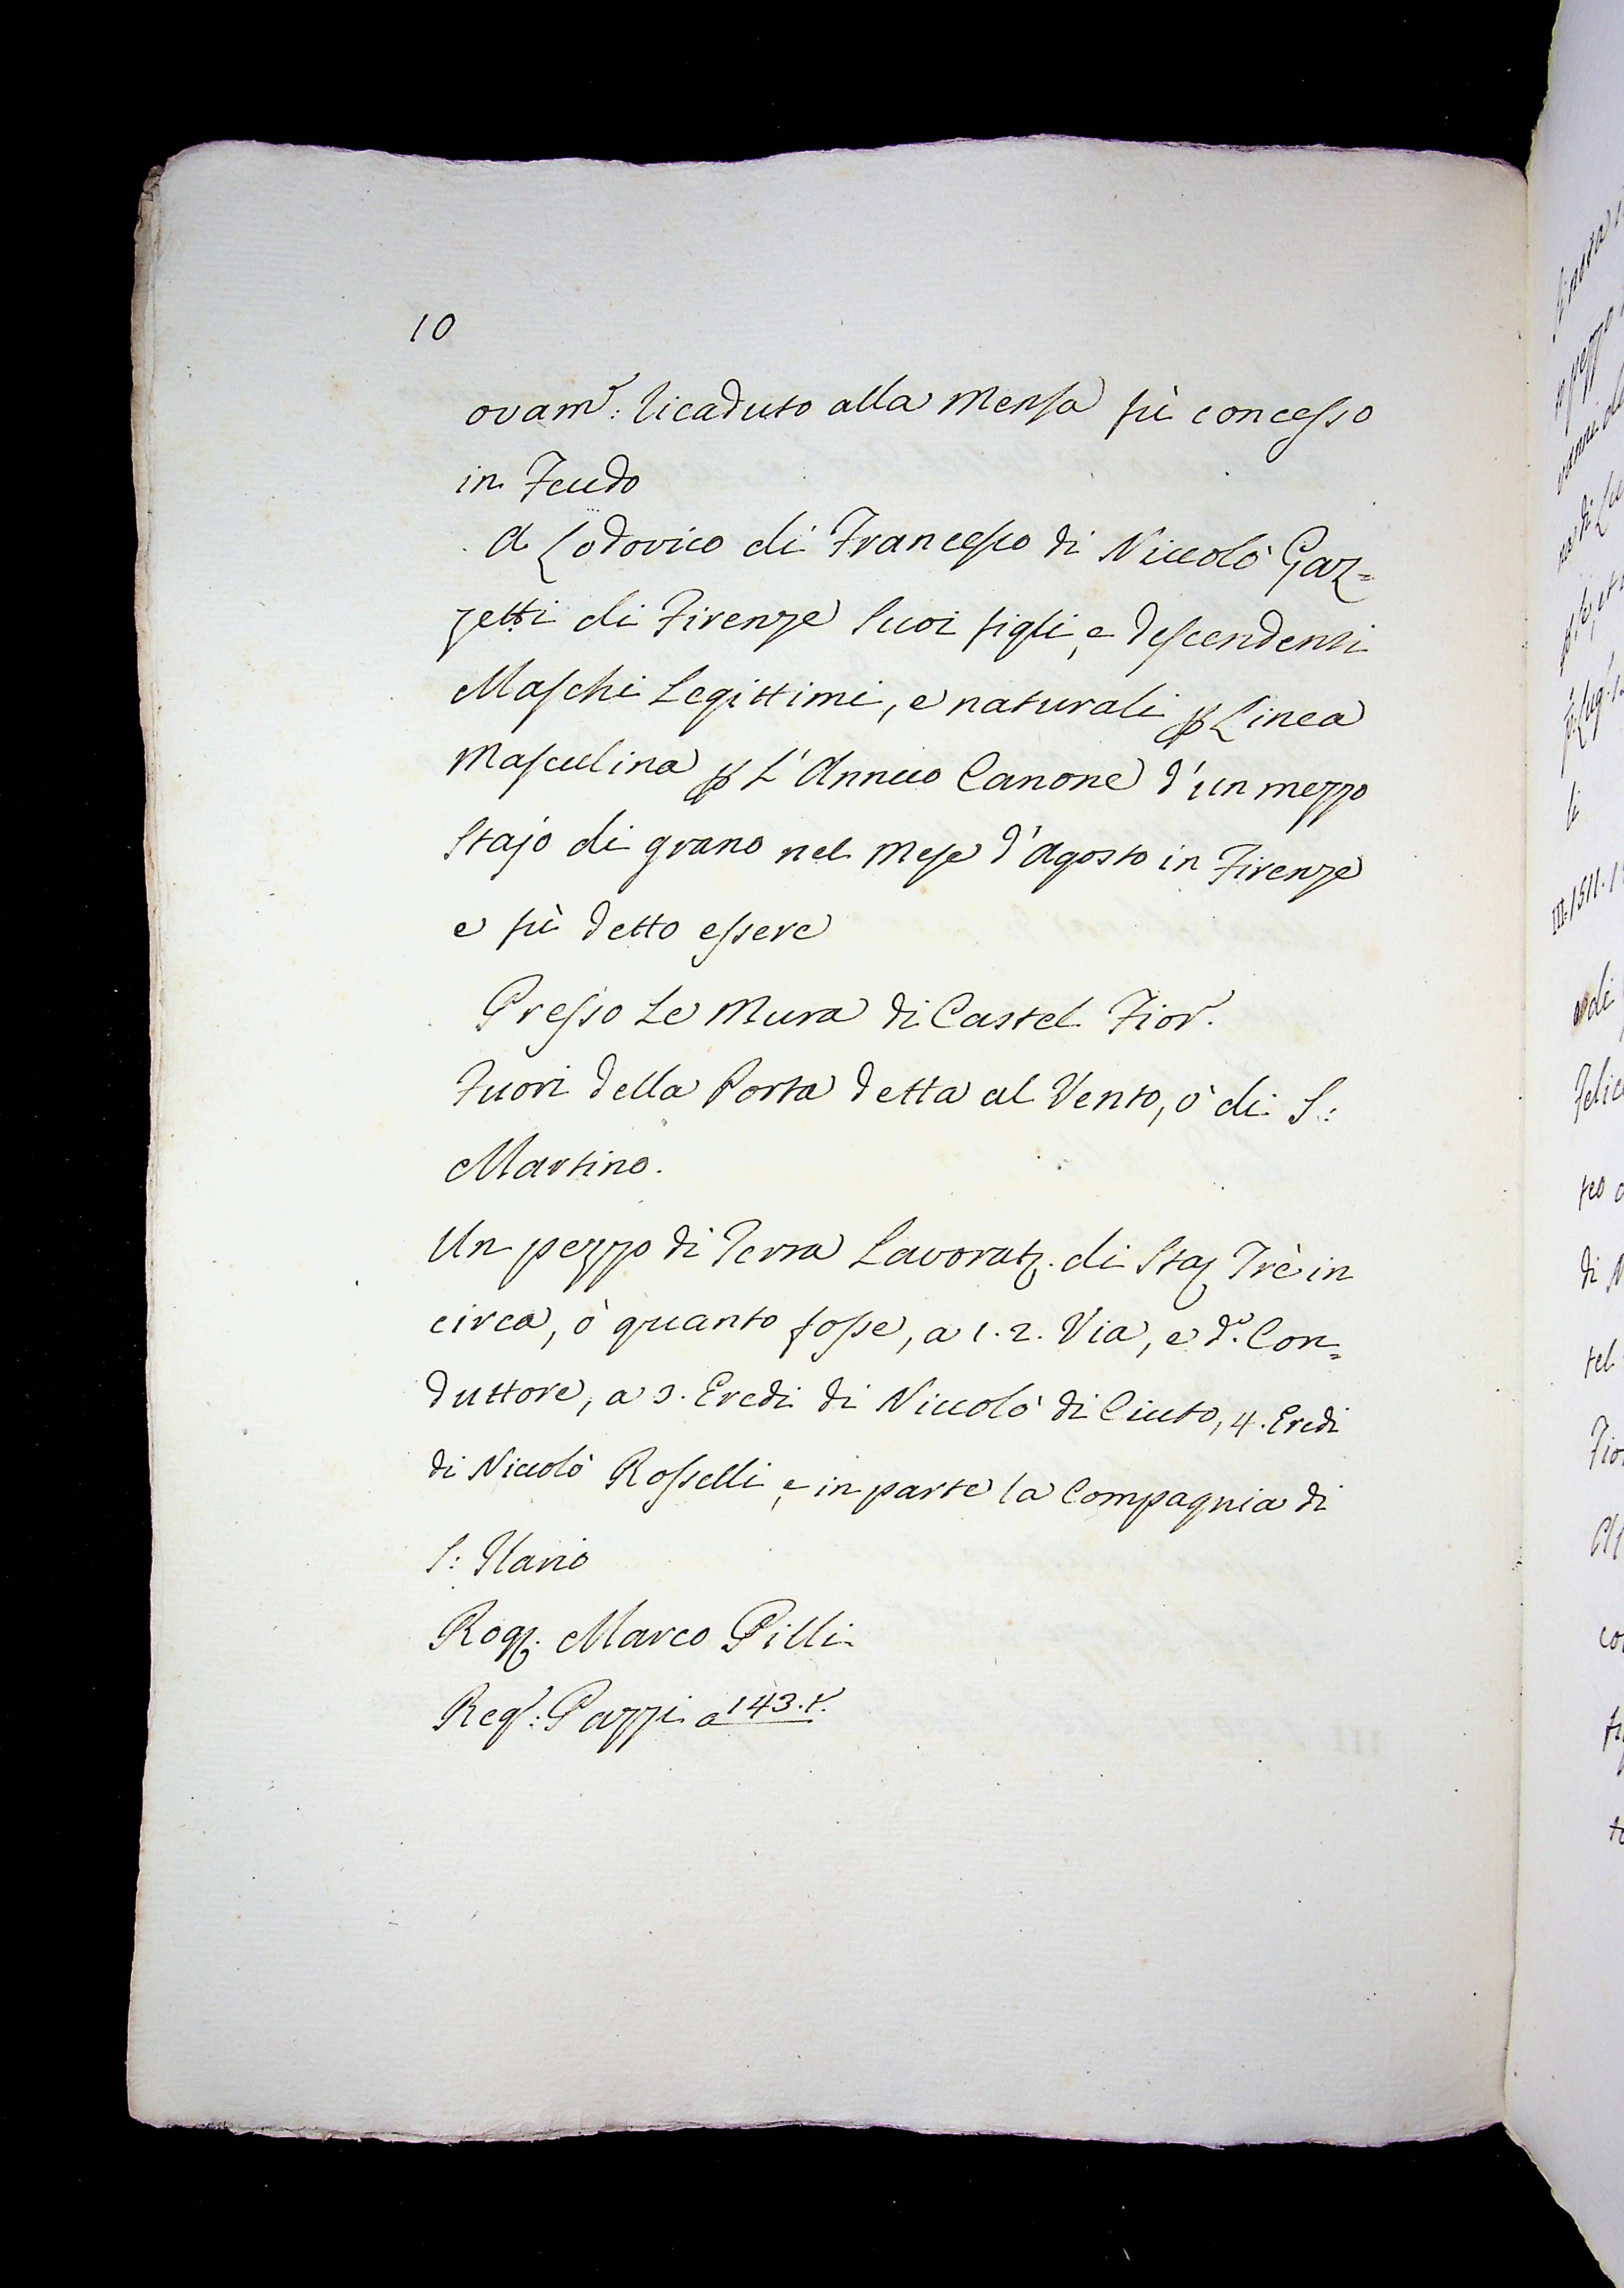 10
ovam.te: ricaduto alla Mensa fù concesso
in Feudo
A Lodovico di Francesco di Niccolò Gaz=
zetti di Firenze suoi figli, e descendenti
Maschi Legittimi, e naturali ꝑ Linea
Masculina ꝑ L'Annuo Canone d'un mezzo
Stajo di grano nel Mese d'Agosto in Firenze
e fù detto essere
Presso Le Mura di Castel Fior.o
Fuori della Porta detta al Vento, ò di S:
Martino.
Un pezzo di Terra Lavorat. di Sta Trè in
circa, ò quanto fosse, a 1. 2. Via, e d.o Con=
duttore, a 3. Eredi di Niccolò di Ciuto, 4. Eredi
di Niccolò Rosselli, e in parte la Compagnia di
S: Ilario
Rog. Marco Pilli
Reg.o: Pazzi a 143.t.